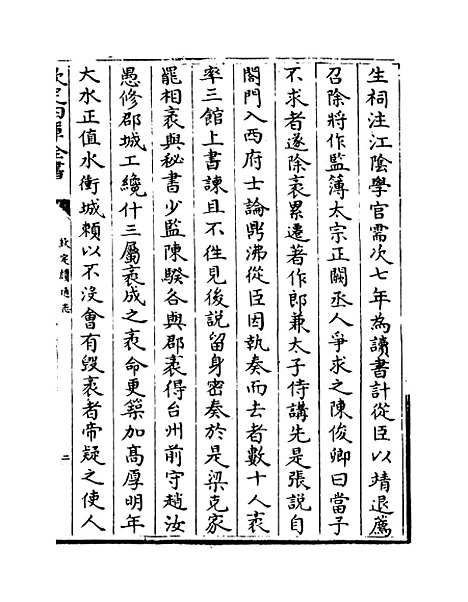 生祠注江陰學官需次七年為讀書計從臣以靖退薦
召除將作監簿太宗正闕丞人爭求之陳俊卿曰當予
不求者遂除袤累遷著作郎兼太子侍講先是張說自
閣門入西府士論鼎沸從臣因執奏而去者數十人袤
率三館上書諫且不徃見後說留身密奏於是梁克家
罷相袤與秘書少監陳騤各與郡袤得台州前守趙汝
愚修郡城工纔什三屬袤成之袤命更築加髙厚明年
大水正值水衝城賴以不沒會有毀袤者帝疑之使人
欽定四庫全書
欽定續通志
二